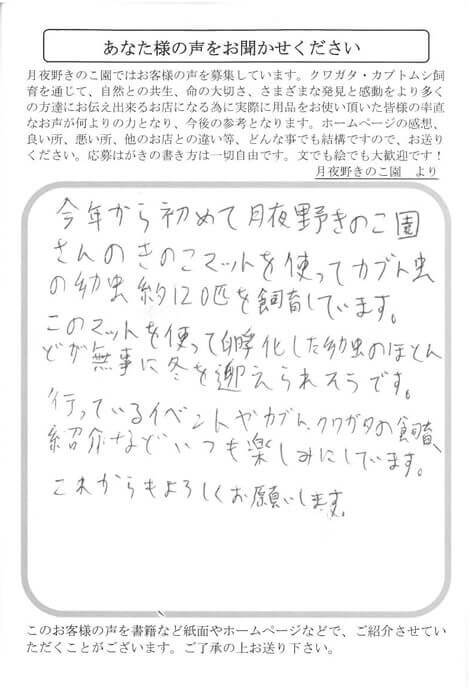 あなた様の声をお聞かせください
月夜野きのこ園ではお客様の声を募集しています。クワガタ・カブトムシ飼
育を通じて、自然との共生、命の大切さ、さまざまな発見と感動をより多く
の方達にお伝え出来るお店になる為に実際に用品をお使い頂いた皆様の率直
なお声が何よりの力となり、今後の参考となります。ホームページの感想、
良い所、悪い所、他のお店との違い等、どんな事でも結構ですので、お送り
ください。応募はがきの書き方は一切自由です。文でも絵でも大歓迎です！
月夜野きのこ園　より
今年から初めて月夜野きのこ園
さんのきのこマットを使ってカブト虫
の幼虫約120匹を飼育しています。
このマットを使って孵化した幼虫のほとん
どが無事に冬を迎えられそうです。
行っているイベントやカブト、クワガタの飼育、
紹介などいつも楽しみにしています。
これからもよろしくお願いします。
このお客様の声を書籍など紙面やホームページなどで、ご紹介させてい
ただくことがございます。ご了承の上お送り下さい。